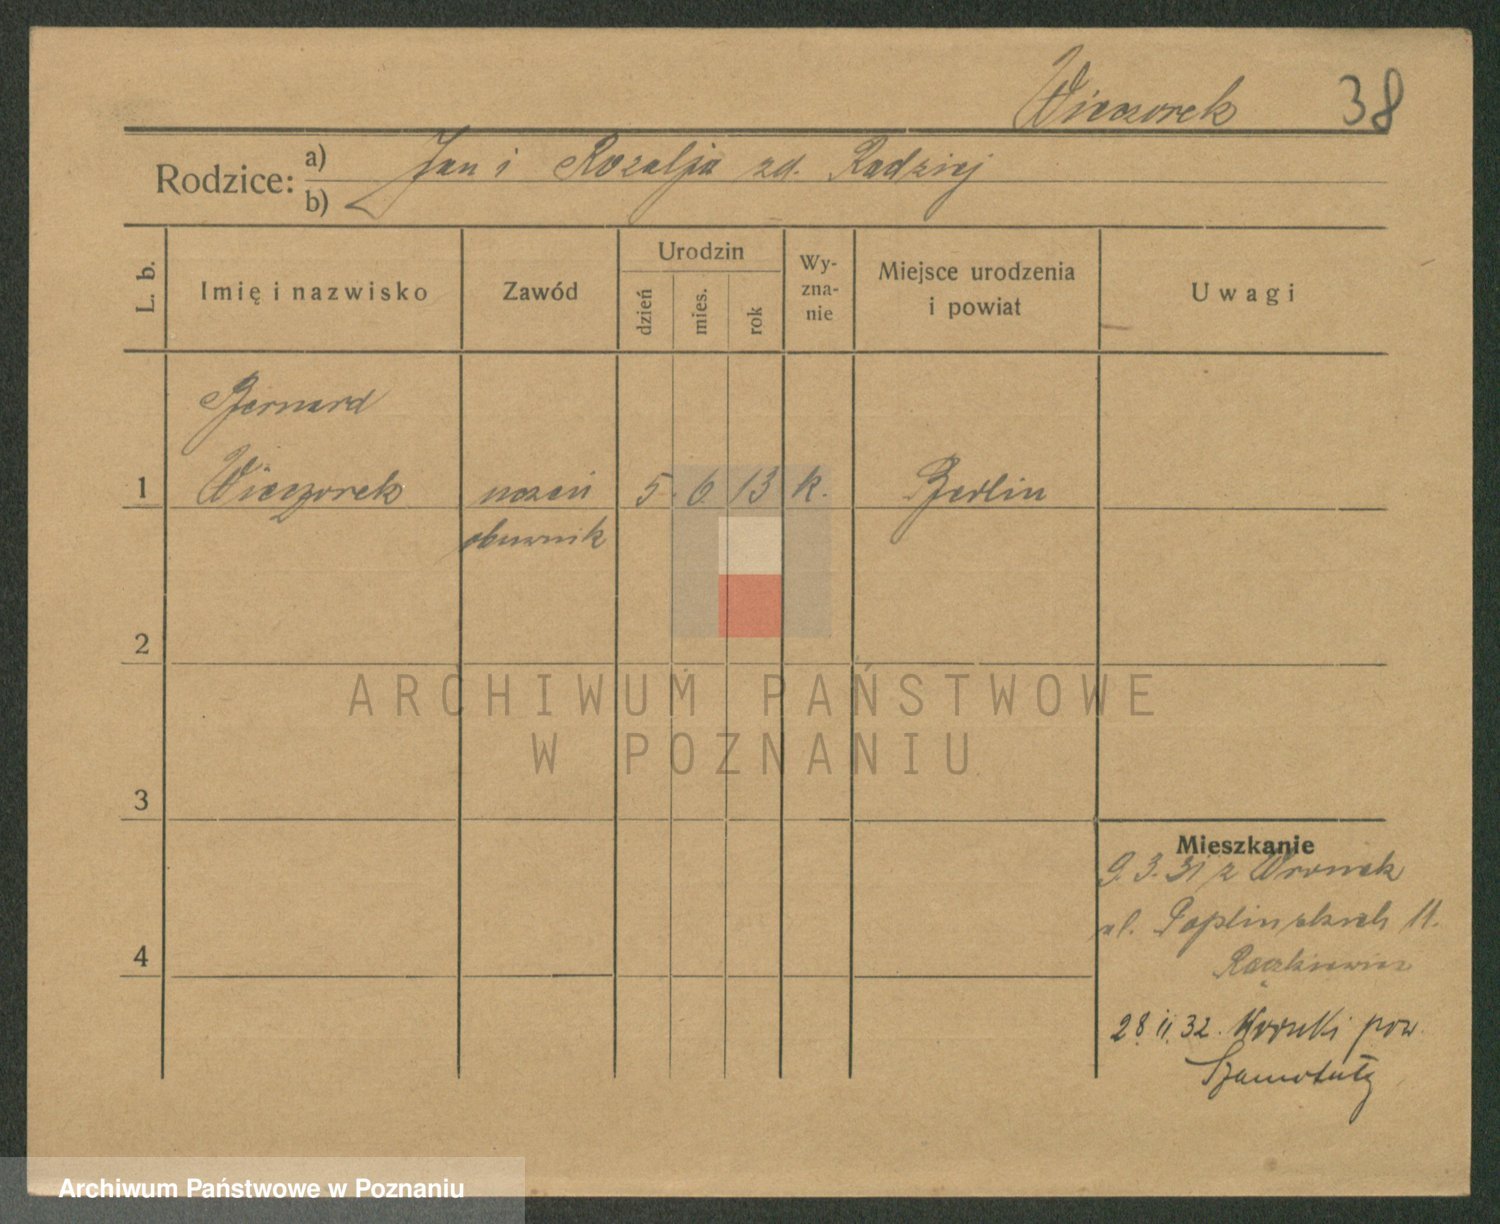 Wieczorek 38
Rodzice:
a) Jan i Rozalja zd. Radziej
b)
L. b.
Imię i nazwisko
Zawód
Urodzin
dzień
mies.
rok
Wy-
zna-
nie
Miejsce urodzenia
i powiat
Uwagi
Bernard
1 Wieczorek uczeń 5. 6. 13 k. Berlin
obuwnik
2
ARCHIWUM PAŃSTWOWE
W POZNANIU
3
Mieszkanie
9. 3. 31 z Wronek
ul. 11.
4
28 II. 32. Wronki pow.
Szamotuły
Archiwum Państwowe w Poznaniu